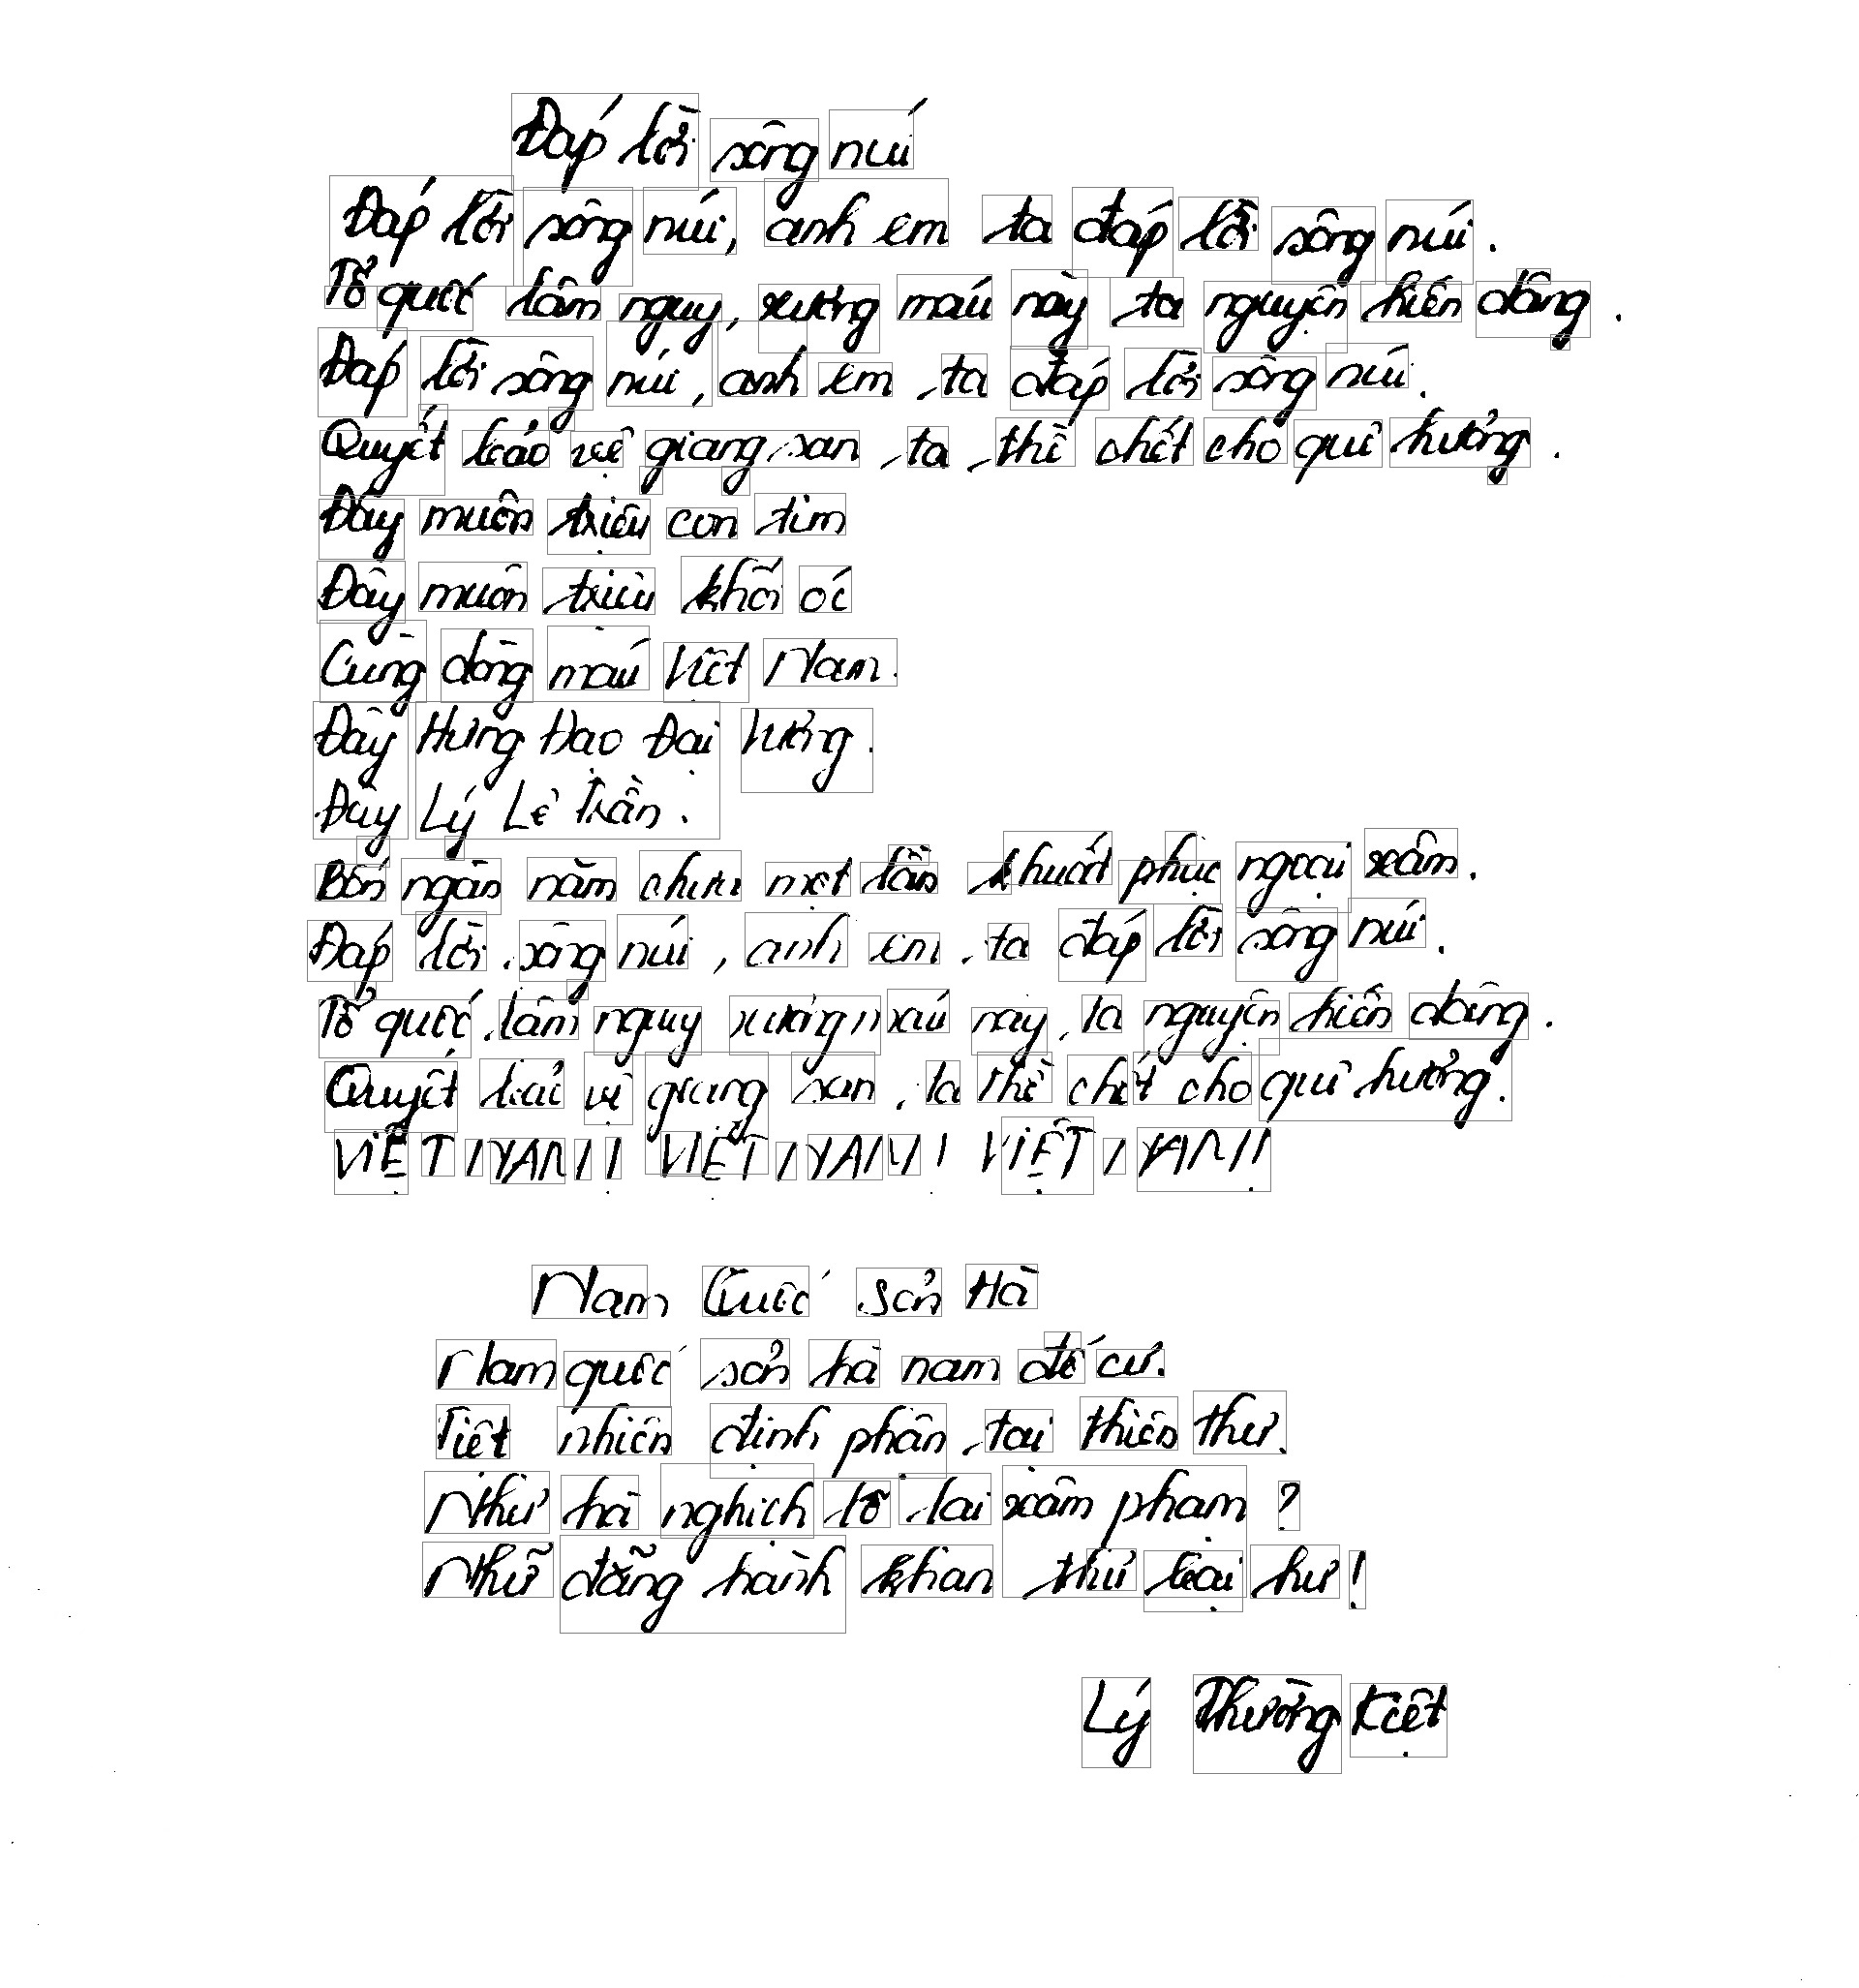 Đáp lời sông núi
Đáp lời sông núi, anh em ta đáp lời sông núi.
Tổ quốc lâm nguy, xương máu này ta nguyện hiến dâng.
Đáp lời sông núi, anh em ta đáp lời sông núi.
Quyết bảo vệ giang san ta thề chết cho quê hương.
Đây muôn triệu con tim
Đây muôn triệu khối óc
Cùng dòng máu Việt Nam.
Đây Hưng Đạo Đại Vương.
Đây Lý Lê Trần.
Bốn ngàn năm chưa một lần khuất phục ngoại xâm.
Đáp lời sông núi, anh em ta đáp lời sông núi.
Tổ quốc lâm nguy xương máu này ta nguyện hiến dâng.
Quyết bảo vệ giang san, ta thề chết cho quê hương.
VIỆT NAM! VIỆT NAM! VIỆT NAM!
Nam Quốc Sơn Hà
Nam quốc sơn hà nam đế cư.
Tiệt nhiên định phận tại thiên thư.
Như hà nghịch lỗ lai xâm phạm ?
Nhữ đẳng hành khan thủ bại hư !
Lý Thường Kiệt